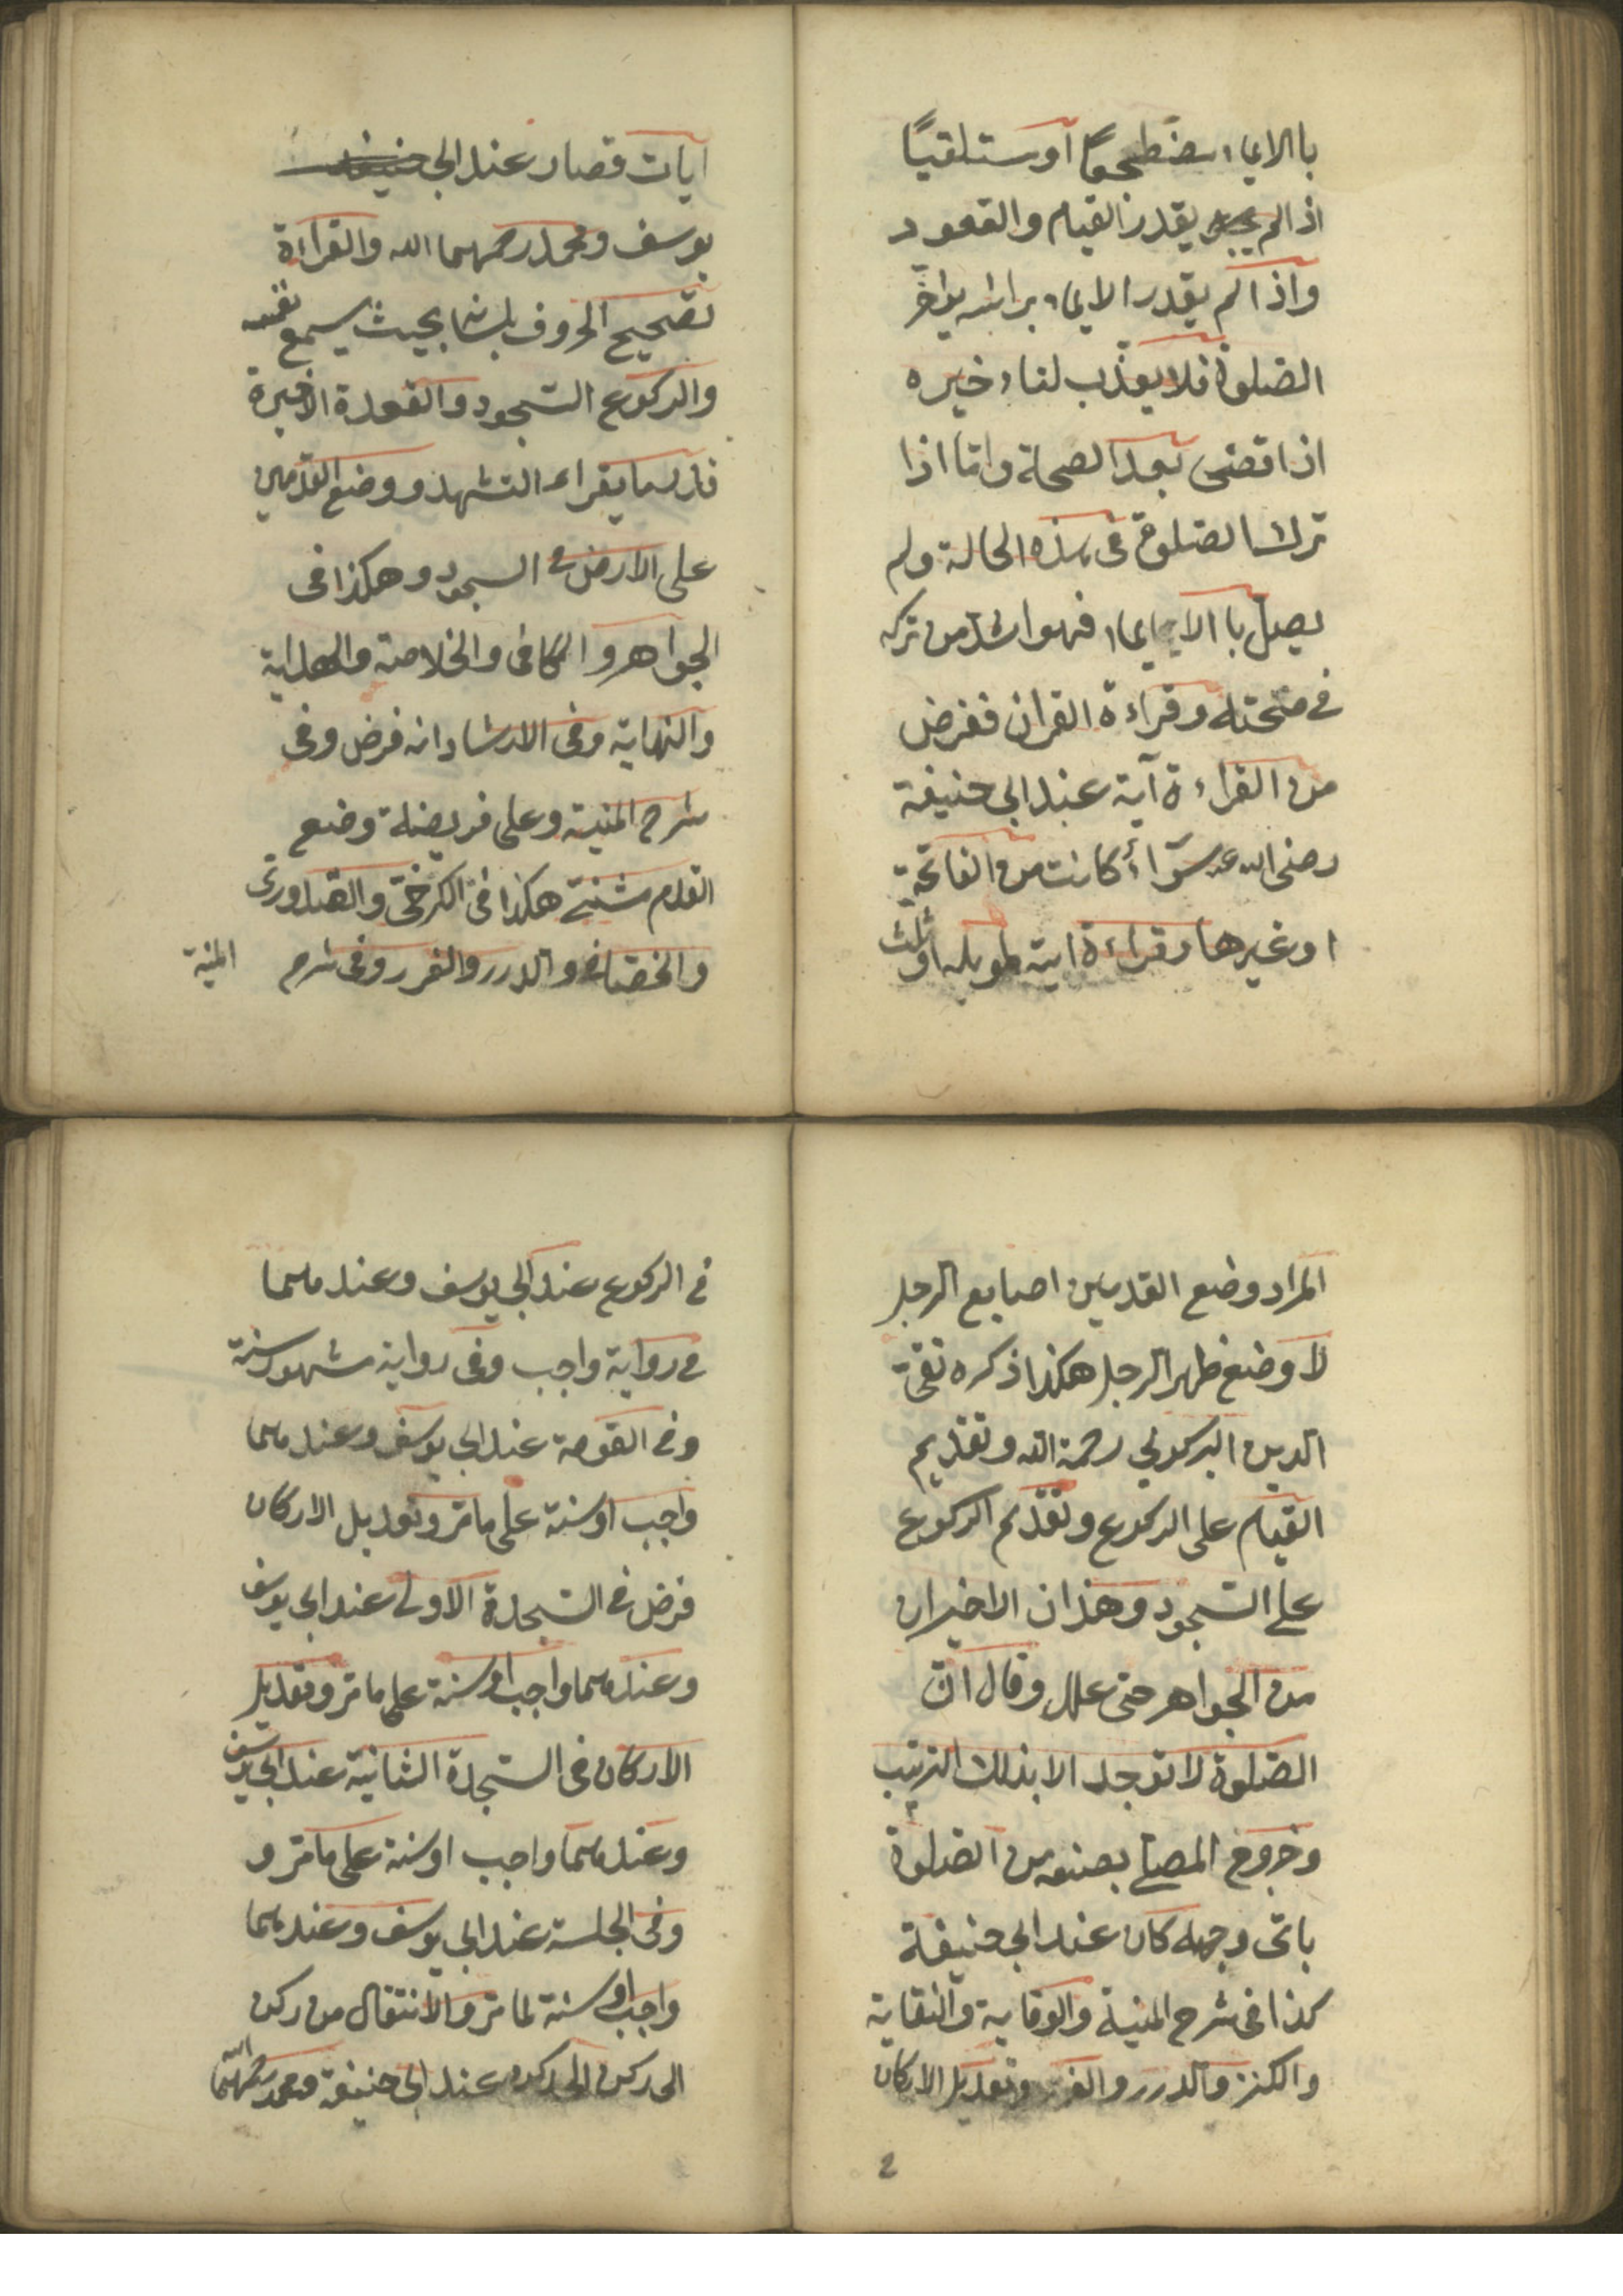 باالايماء مضطجعًا أو مستلقيًا
اذا لم يقدر القيام والقعود
واذا لم يقدر الايماء براسه يؤاخر
الصلوة فلا يعذب لتاءخيره
اذا قضى بعد الصحة واما اذا
ترك الصلوة فى هذه الحالة ولم
يصل باالايماء فهو اشد من تركه
فى صحته وقراءة القران ففرض
من القراءة آية عند ابى حنيفة
رضى الله عنه سوّاءٌ كانت من الفاتحة
اوغيرها وقراءة اية طويله او ثلث
ايات قصار عند ابى
يوسف ومحمد رحمهما الله والقراءة
تصحيح الحروف بلسانه بحيث يسمع نفسه
والركوع السجود والقعدة الاخيرة
قدر ما يقراء التشهد ووضع القدمين
على الارض فى السجود وهكذا فى
الجواهر والكافى والخلاصة والهداية
والنهاية وفى الارشاد انه فرض وفى
شرح المنية وعلى فريضة وضع
القدم هكذا فى الكرخى والقدورى
والخصاف والدرر والغرر وفى شرح المنية
المراد وضع القدمين اصابع الرجل
لا وضع ظهر الرجل هكذا ذكره تقى
الدين البركوى رحمة الله وتقديم
القيام على الركوع وتقديم الركوع
على السجود وهذان الاخيران
من الجواهر حتى علل وقال ان
الصلوة لا توجد الا بذلك الترتيب
وخروج المصلى بصنعه من الصلوة
باى وجهه كان عند ابى حنيفة
كذا فى شرح المنية والوقاية والنقاية
والكنز والدرر والغرر وتعديل الاركان
2
فى الركوع عند ابى يوسف وعندهما
فى رواية واجب وفى رواية مشهور سنة
وفى القومة عند ابى يوسف وعندهما
واجب او سنة على مامر وتعديل الاركان
فرض فى السجدة الاولى عند ابى يوسف
وعندهما واجب او سنة على مامر وتعديل
الاركان فى السجدة الثانية عند ابى يوسف
وعندهما واجب او سنة على مامر و
وفى الجلسة عند ابى يوسف وعندهما
واجب او سنة لما مر والانتقال من ركن
الى ركن الى ركن عند ابى حنيفة ومحمد رحمهما الله